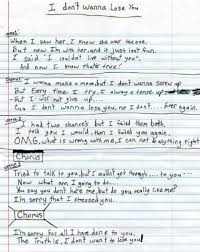 I don't wanna Lose You
When I saw her, I knew she was the one.
But now I'm with her, and it just isn't fun.
I said "I couldn't live without you".
And now I know that's true!
I wanna make a move but I don't wanna screw up
But Every time I try, I always tense up
But I will not give up
Cuz I don't wanna lose you, no I don't... Ever again.
I had two chances but I failed them both.
I told you I would, then I failed you again.
OMG, what is wrong with me, I can not do anything right
Chorus
Tried to talk to you, but I could't get through.... to you...
Now what am I going to do...
You say you don't hate me, but do you really like me?
I'm sorry that I stressed you.
Chorus
I'm sorry for all I have done to you.
The Truth is, I don't want to lose you!